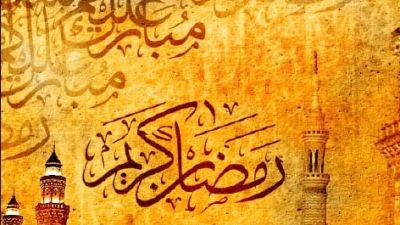 مُبارك عليكم
مبارك عليكم
رمضان كريم